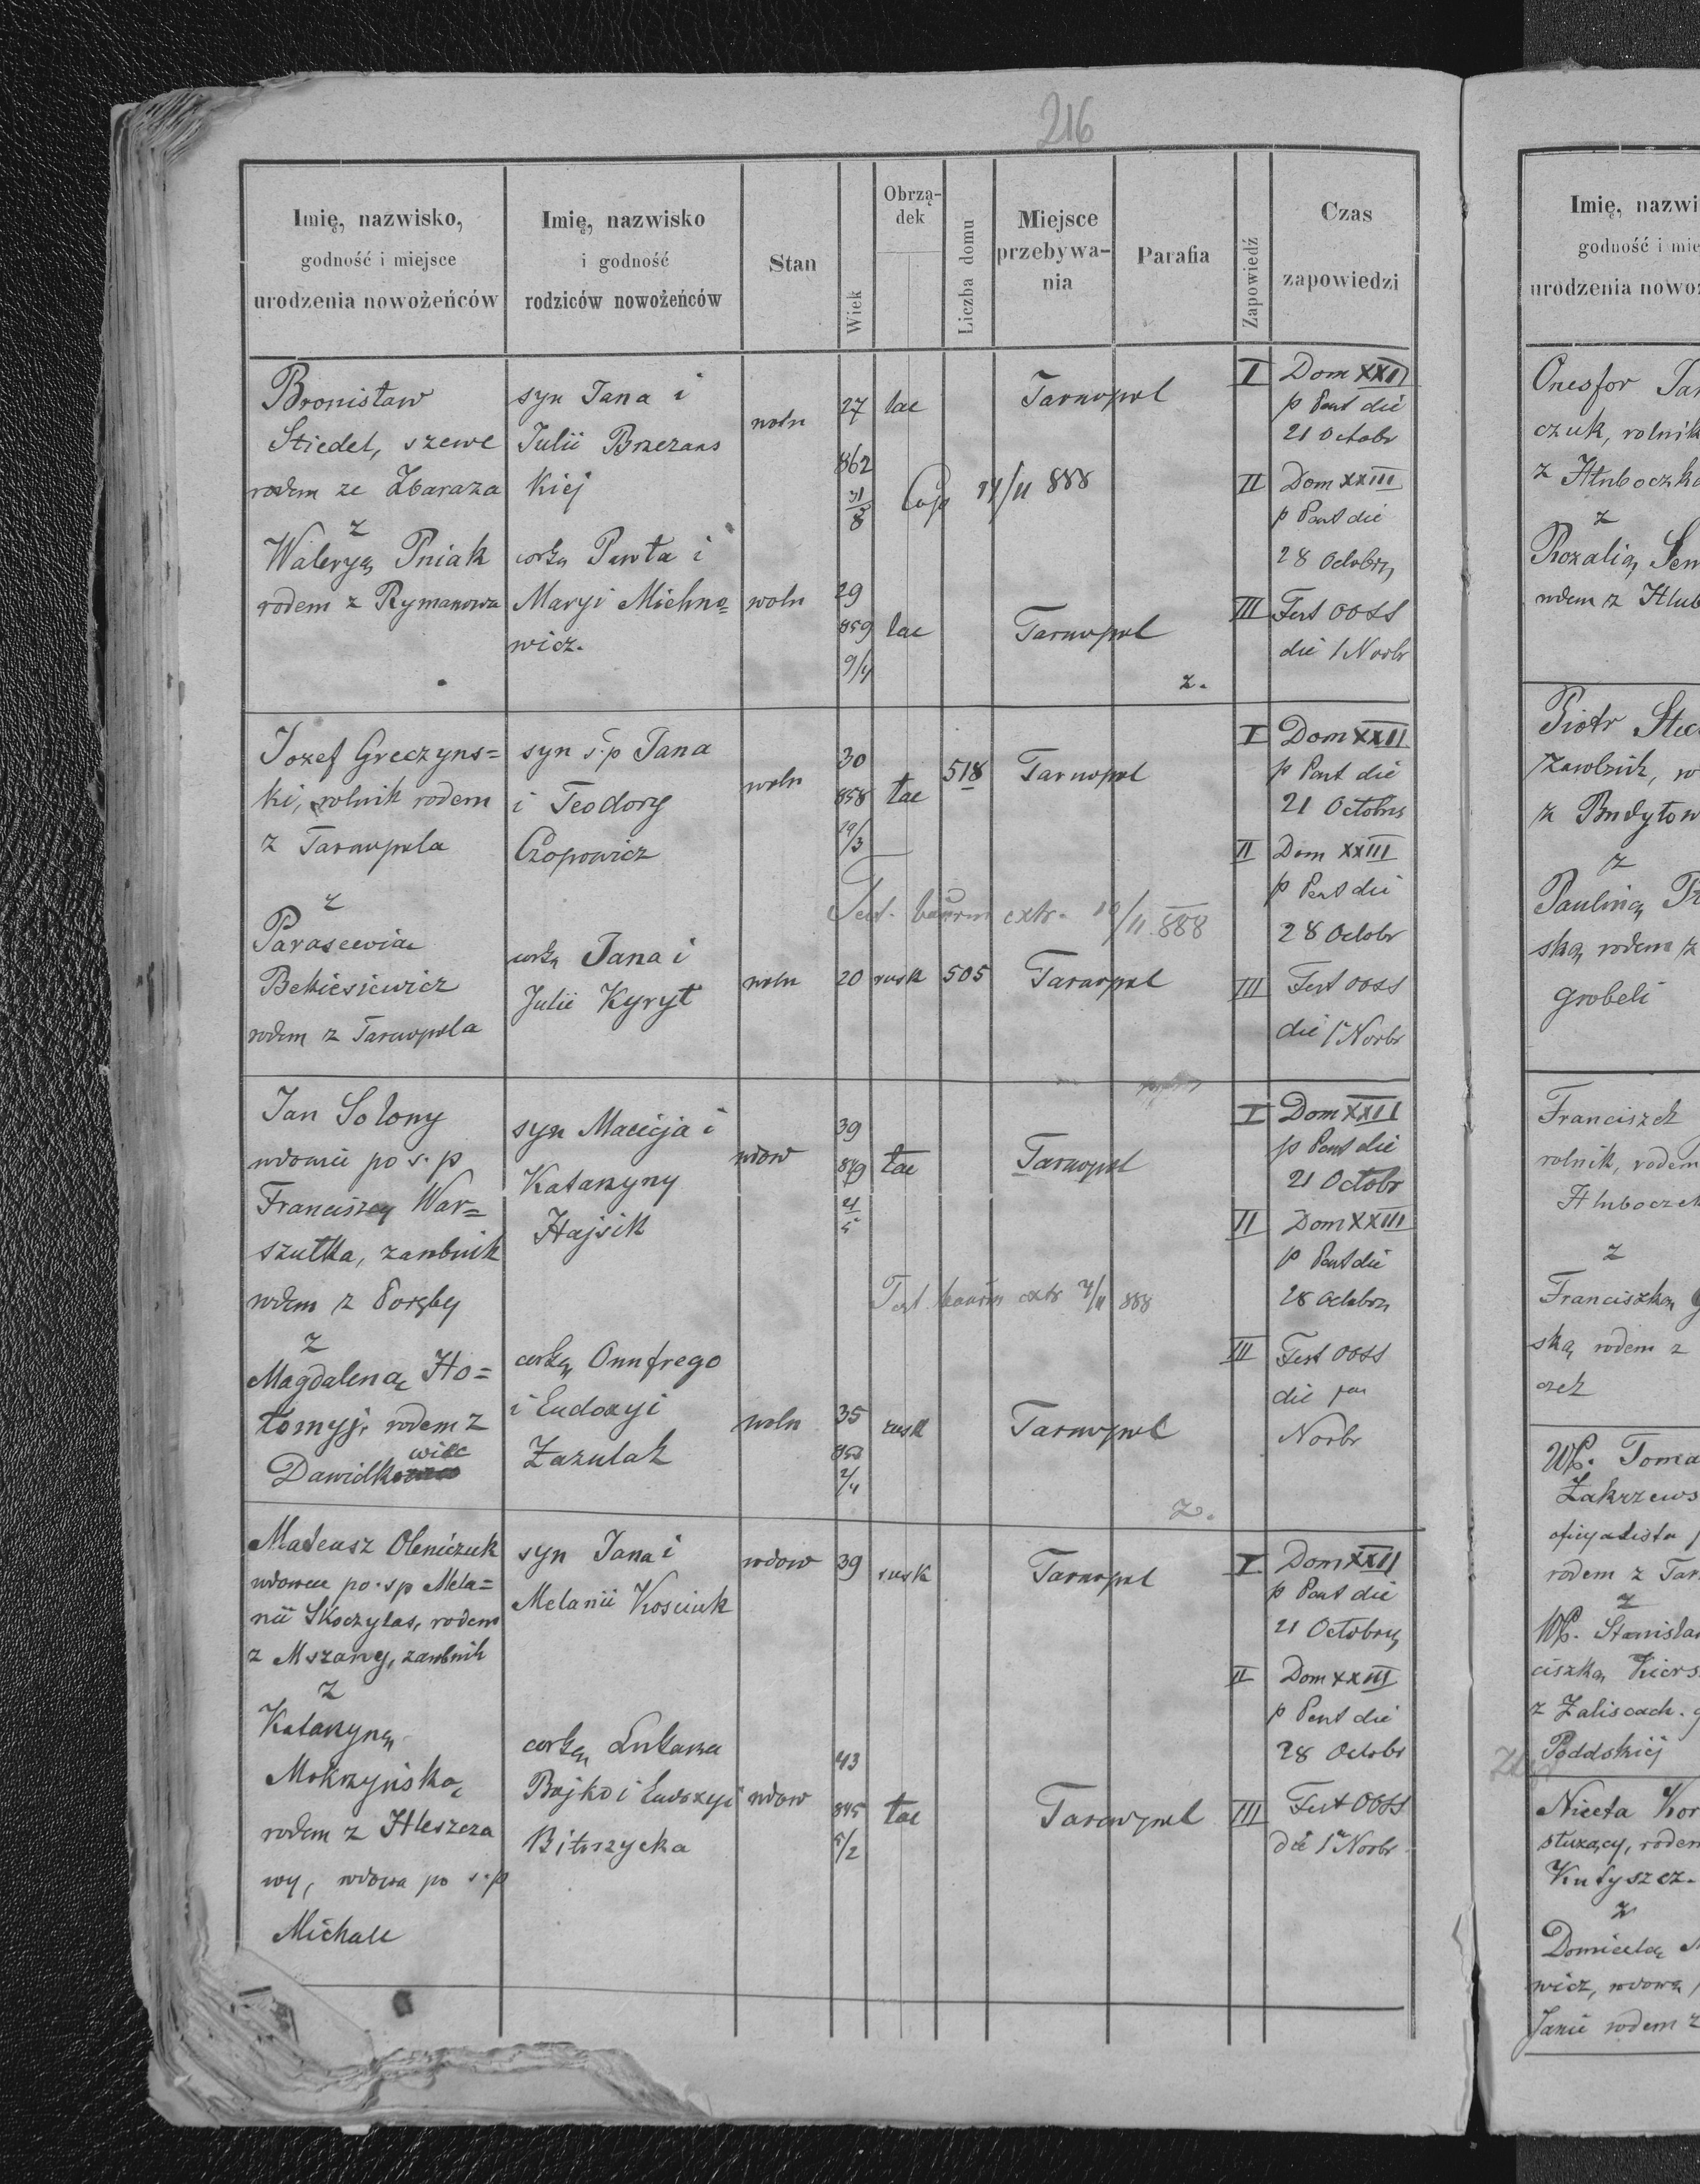 216
Imię, nazwisko,
godność i miejsce
urodzenia nowożeńców
Imię, nazwisko
i godność
rodziców nowożeńców
Stan
Wiek
Obrzą-
dek
Liczba domu
Miejsce
przebywa-
nia
Parafia
Zapowiedź
Czas
zapowiedzi
Bronisław
Stiedel, szewc
rodem ze Zbaraza
z
Waleryą Pniak
rodem z Rymanowa
syn Jana i
Julii Brzezans
kiej
corką Pawła i
Maryi Michno=
wicz.
woln
27
862
31/8
lac
Tarnopol
14/11 888
woln
29
859
9/4
lac
Tarnopol
z.
I Dom XXII
p Pent die
21 Octobr
II Dom XXIII
p Pent die
28 Octobr
III Fest OOSS
die 1 Novbr
Jozef Greczyns=
ki, rolnik rodem
z Tarnopola
z
Parascewia
Bekiesiewicz
rodem z Tarnopola
syn s.p Jana
i Teodory
Czopowicz
corką Jana i
Julii Kyryt
woln
30
858
19/3
łac
518
Tarnopol
Test. bannm extr. 10/11 888
woln
20
rusk
505
Tarnopol
I Dom XXII
p Pent die
21 Octobris
II Dom XXIII
p Pent die
28 Octobr
III Fest OOSS
die 1 Novbr
Jan Solony
wdowiec po s.p
Franciszcy War=
szutka, zarobnik
rodem z Poręby
z
Magdaleną Ho=
łomyj, rodem z
Dawidkowiec
syn Macieja i
Katarzyny
Hajsik
corką Onufrego
i Eudoxyi
Zazulak
wdow
39
849
21/5
łac
Tarnopol
Test bannm extr 4/11 888
woln
35
853
2/4
rusk
Tarnopol
z.
I Dom XXII
p Pent die
21 Octobr
II Dom XXIII
p Pent die
28 Octobr
III Fest OOSS
die
Novbr
Mateusz Oleniczuk
wdowiec po s p Mela=
nii Skoczylas, rodem
z Mszany, zarobnik
z
Katarzyną
Mokrzyńską
rodem z Hleszcza
wy, wdowa po s.p
Michale
syn Jana i
Melanii Kosciuk
corką Łukasza
Bojko i Eudoxyi
wdow
39
rusk
Tarnopol
43
845
5/2
wdow
łac
Tarnopol
I Dom XXII
p Pent die
21 Octobris
II Dom XXIII
p Pent die
28 Octobr
III Fest OOSS
die 1 Novbr
Imię, nazwi
godność i mie
urodzenia nowoż
Onesfor
czuk, rolnik
z Hłuboczka
z
Rozalią
rodem z Hlub
Piotr
zarobnik,
z
z
Pauliną
ską rodem z
grobeli
Franciszek
rolnik, rodem
Hluboczek
z
Franciszką
ską rodem z
czek
WP. Toma
Zakrzews
oficyalista
rodem z Tar
z
WP. Stanisła
ciszką Kiers
z Zaliscach.
Poddolskiej
Niceta Kor
służący, rodem
Kutyszcz.
z
Domicelą
wicz, wdową
Janie rodem z